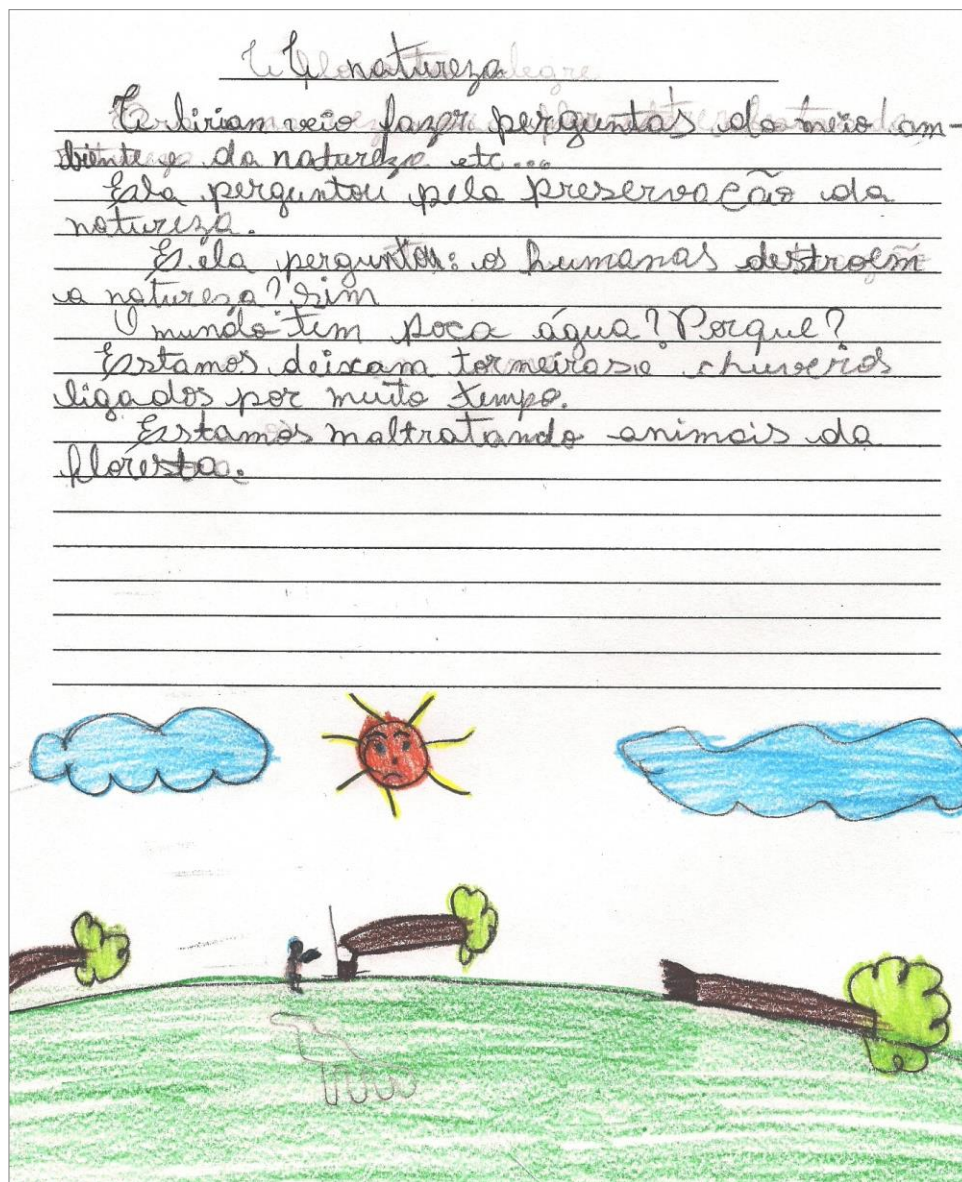 A natureza
veio fazer perguntas do meio am-
biente e da natureza etc...
Ela perguntou pela preservação da
natureza.
E ela perguntou: os humanas destroem
a natureza? Sim
O mundo tem poca água? Porque?
Estamos deixam torneiras e chuveros
ligados por muito tempo.
Estamos maltratando animais da
floresta.